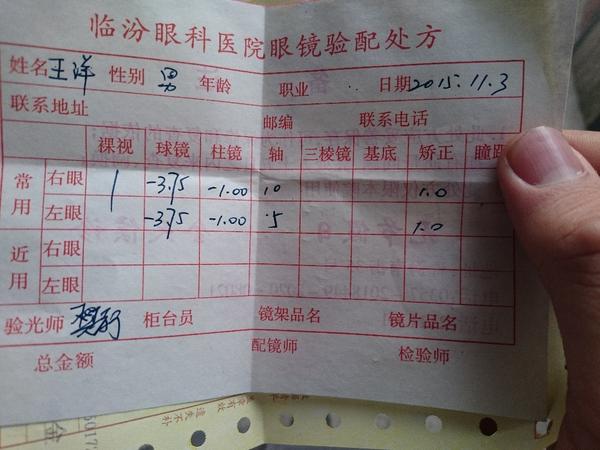 临汾眼科医院眼镜验配处方
姓名 王洋 性别 男 年龄 职业 日期 2015.11.3
联系地址 邮编 联系电话
裸视 球镜 柱镜 轴 三棱镜 基底 矫正 瞳距
常用 右眼 -3.75 -1.00 10 1.0
左眼 -3.75 -1.00 5 1.0
近用 右眼
左眼
验光师 柜台员 镜架品名 镜片品名
总金额 配镜师 检验师